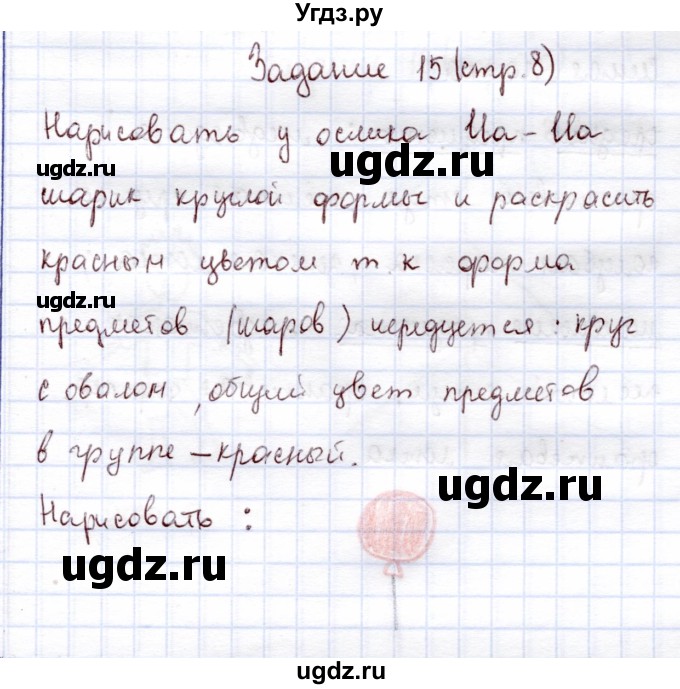 Угдз.ру
Задание 15 (стр. 8)
Нарисовать у ослика Иа-Иа
ugdz.ru ugdz.ru
шарик круглой формы и раскрасить
красным цветом т к форма
ugdz.ru
предметов (шаров) чередуется: круг
с овалом, общий цвет предметов
ugdz.ru
в группе - красный.
Нарисовать :
ugdz.ru
ugdz.ru